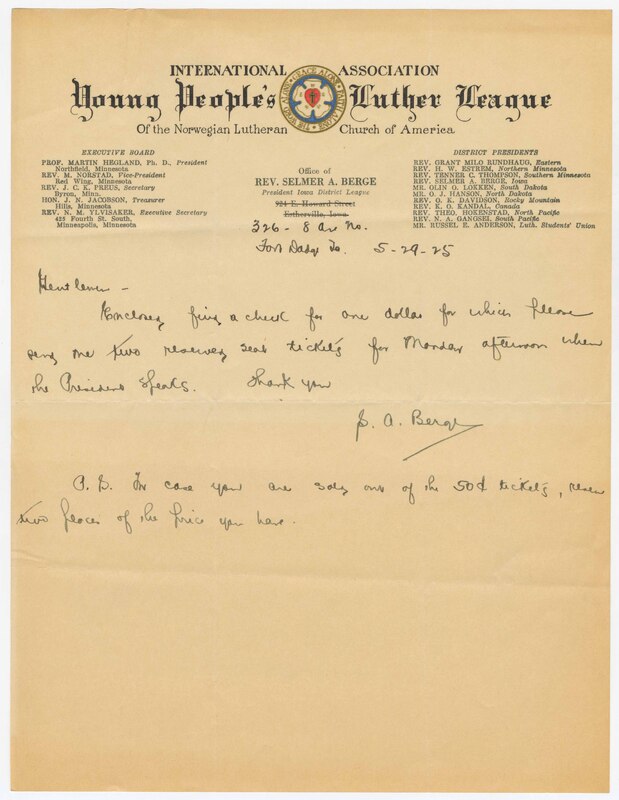 INTERNATIONAL ASSOCIATION
Young People's Luther League
THE WORD ALONE · GRACE ALONE · FAITH ALONE
Of the Norwegian Lutheran Church of America
EXECUTIVE BOARD
PROF. MARTIN HEGLAND, Ph. D., President
Northfield, Minnesota
REV. M. NORSTAD, Vice-President
Red Wing, Minnesota
REV. J. C. K. PREUS, Secretary
Byron, Minn.
HON. J. N. JACOBSON, Treasurer
Hills, Minnesota
REV. N. M. YLVISAKER, Executive Secretary
425 Fourth St. South,
Minneapolis, Minnesota
Office of
REV. SELMER A. BERGE
President Iowa District League
924 E. Howard Street
Estherville, Iowa
DISTRICT PRESIDENTS
REV. GRANT MILO RUNDHAUG, Eastern
REV. H. W. ESTREM, Northern Minnesota
REV. TENNER C. THOMPSON, Southern Minnesota
REV. SELMER A. BERGE, Iowa
MR. OLIN O. LOKKEN, South Dakota
MR. O. J. HANSON, North Dakota
REV. O. K. DAVIDSON, Rocky Mountain
REV. K. O. KANDAL, Canada
REV. THEO. HOKENSTAD, North Pacific
REV. N. A. GANGSEI, South Pacific
MR. RUSSEL E. ANDERSON, Luth. Students' Union
326 - 8 Ave No.
Fort Dodge Io. 5-29-25
Gentlemen -
Enclosed find a check for one dollar for which please
send me two reserved seat tickets for Monday afternoon when
the President speaks. Thank you
S. A. Berge
P. S. In case you are sold out of the 50¢ tickets, reserve
two places of the price you have.